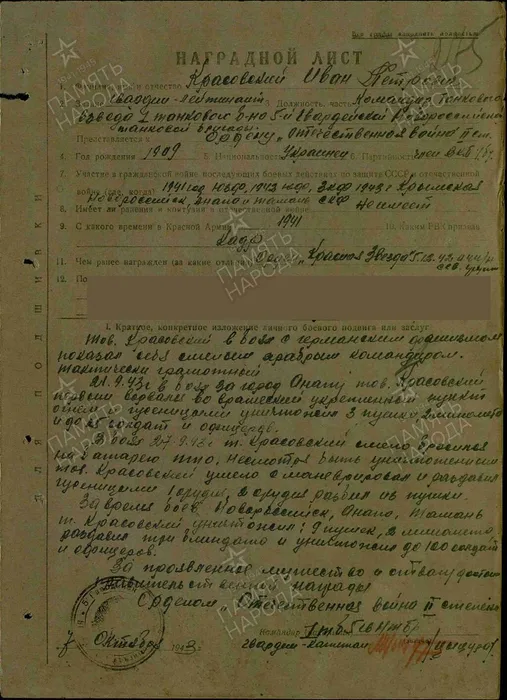 НАГРАДНОЙ ЛИСТ
1. Фамилия, имя и отчество Красовский Иван Петрович
2. Звание Гвардии-лейтенант 3. Должность, часть Командир танкового
взвода 1 танкового б-на 5-й Гвардейской Новороссийской
танковой бригады
Представляется к Ордену "Отечественная война II ст.
4. Год рождения 1909 5. Национальность Украинец 6. Партийность член ВКП(б)
7. Участие в гражданской войне, последующих боевых действиях по защите СССР и отечественной
войне (где, когда) 1941 год ЮВФ, 1942 ЮВФ, ЗКФ 1943 г. Крымская
Новороссийск, Анапа и Тамань СКФ
8. Имеет ли ранения и контузии в отечественной войне Не имеет
9. С какого времени в Красной Армии 1941
Кадр
11. Чем ранее награжден (за какие отличия) Орд. "Красная Звезда"
12. По
I. Краткое, конкретное изложение личного боевого подвига или заслуг
Тов. Красовский в боях с германским фашизмом
показал себя смелым и храбрым командиром.
тактически грамотный
21.9.43г в боях за город Анапу тов. Красовский
первым ворвался во вражеский укрепленный пункт
огнем и гусеницами уничтожил 3 пушки 2 миномета
и до солдат и офицеров.
В боях 27.9.43г т. Красовский смело ворвался
на батарею ПТО, несмотря быть уничтоженным
тов. Красовский умело сманеврировал и раздавил
гусеницами 1 орудие, 2 орудия разбил из пушки.
За время боев Новороссийск, Анапа, Тамань
т. Красовский уничтожил: 9 пушек, 2 миномета
раздавил три блиндажа и уничтожил до 100 солдат
и офицеров.
За проявленное мужество и отвагу достоин
правительственной награды
Орденом "Отечественная война II степени
Командир 1 т.б. 5 ГвНТБр
гвардии-капитан
7 Октября 1943 г.
ДЛЯ ПОДШИВКИ
ПАМЯТЬ НАРОДА
ПАМЯТЬ НАРОДА
ПАМЯТЬ НАРОДА
ПАМЯТЬ НАРОДА
ПАМЯТЬ НАРОДА